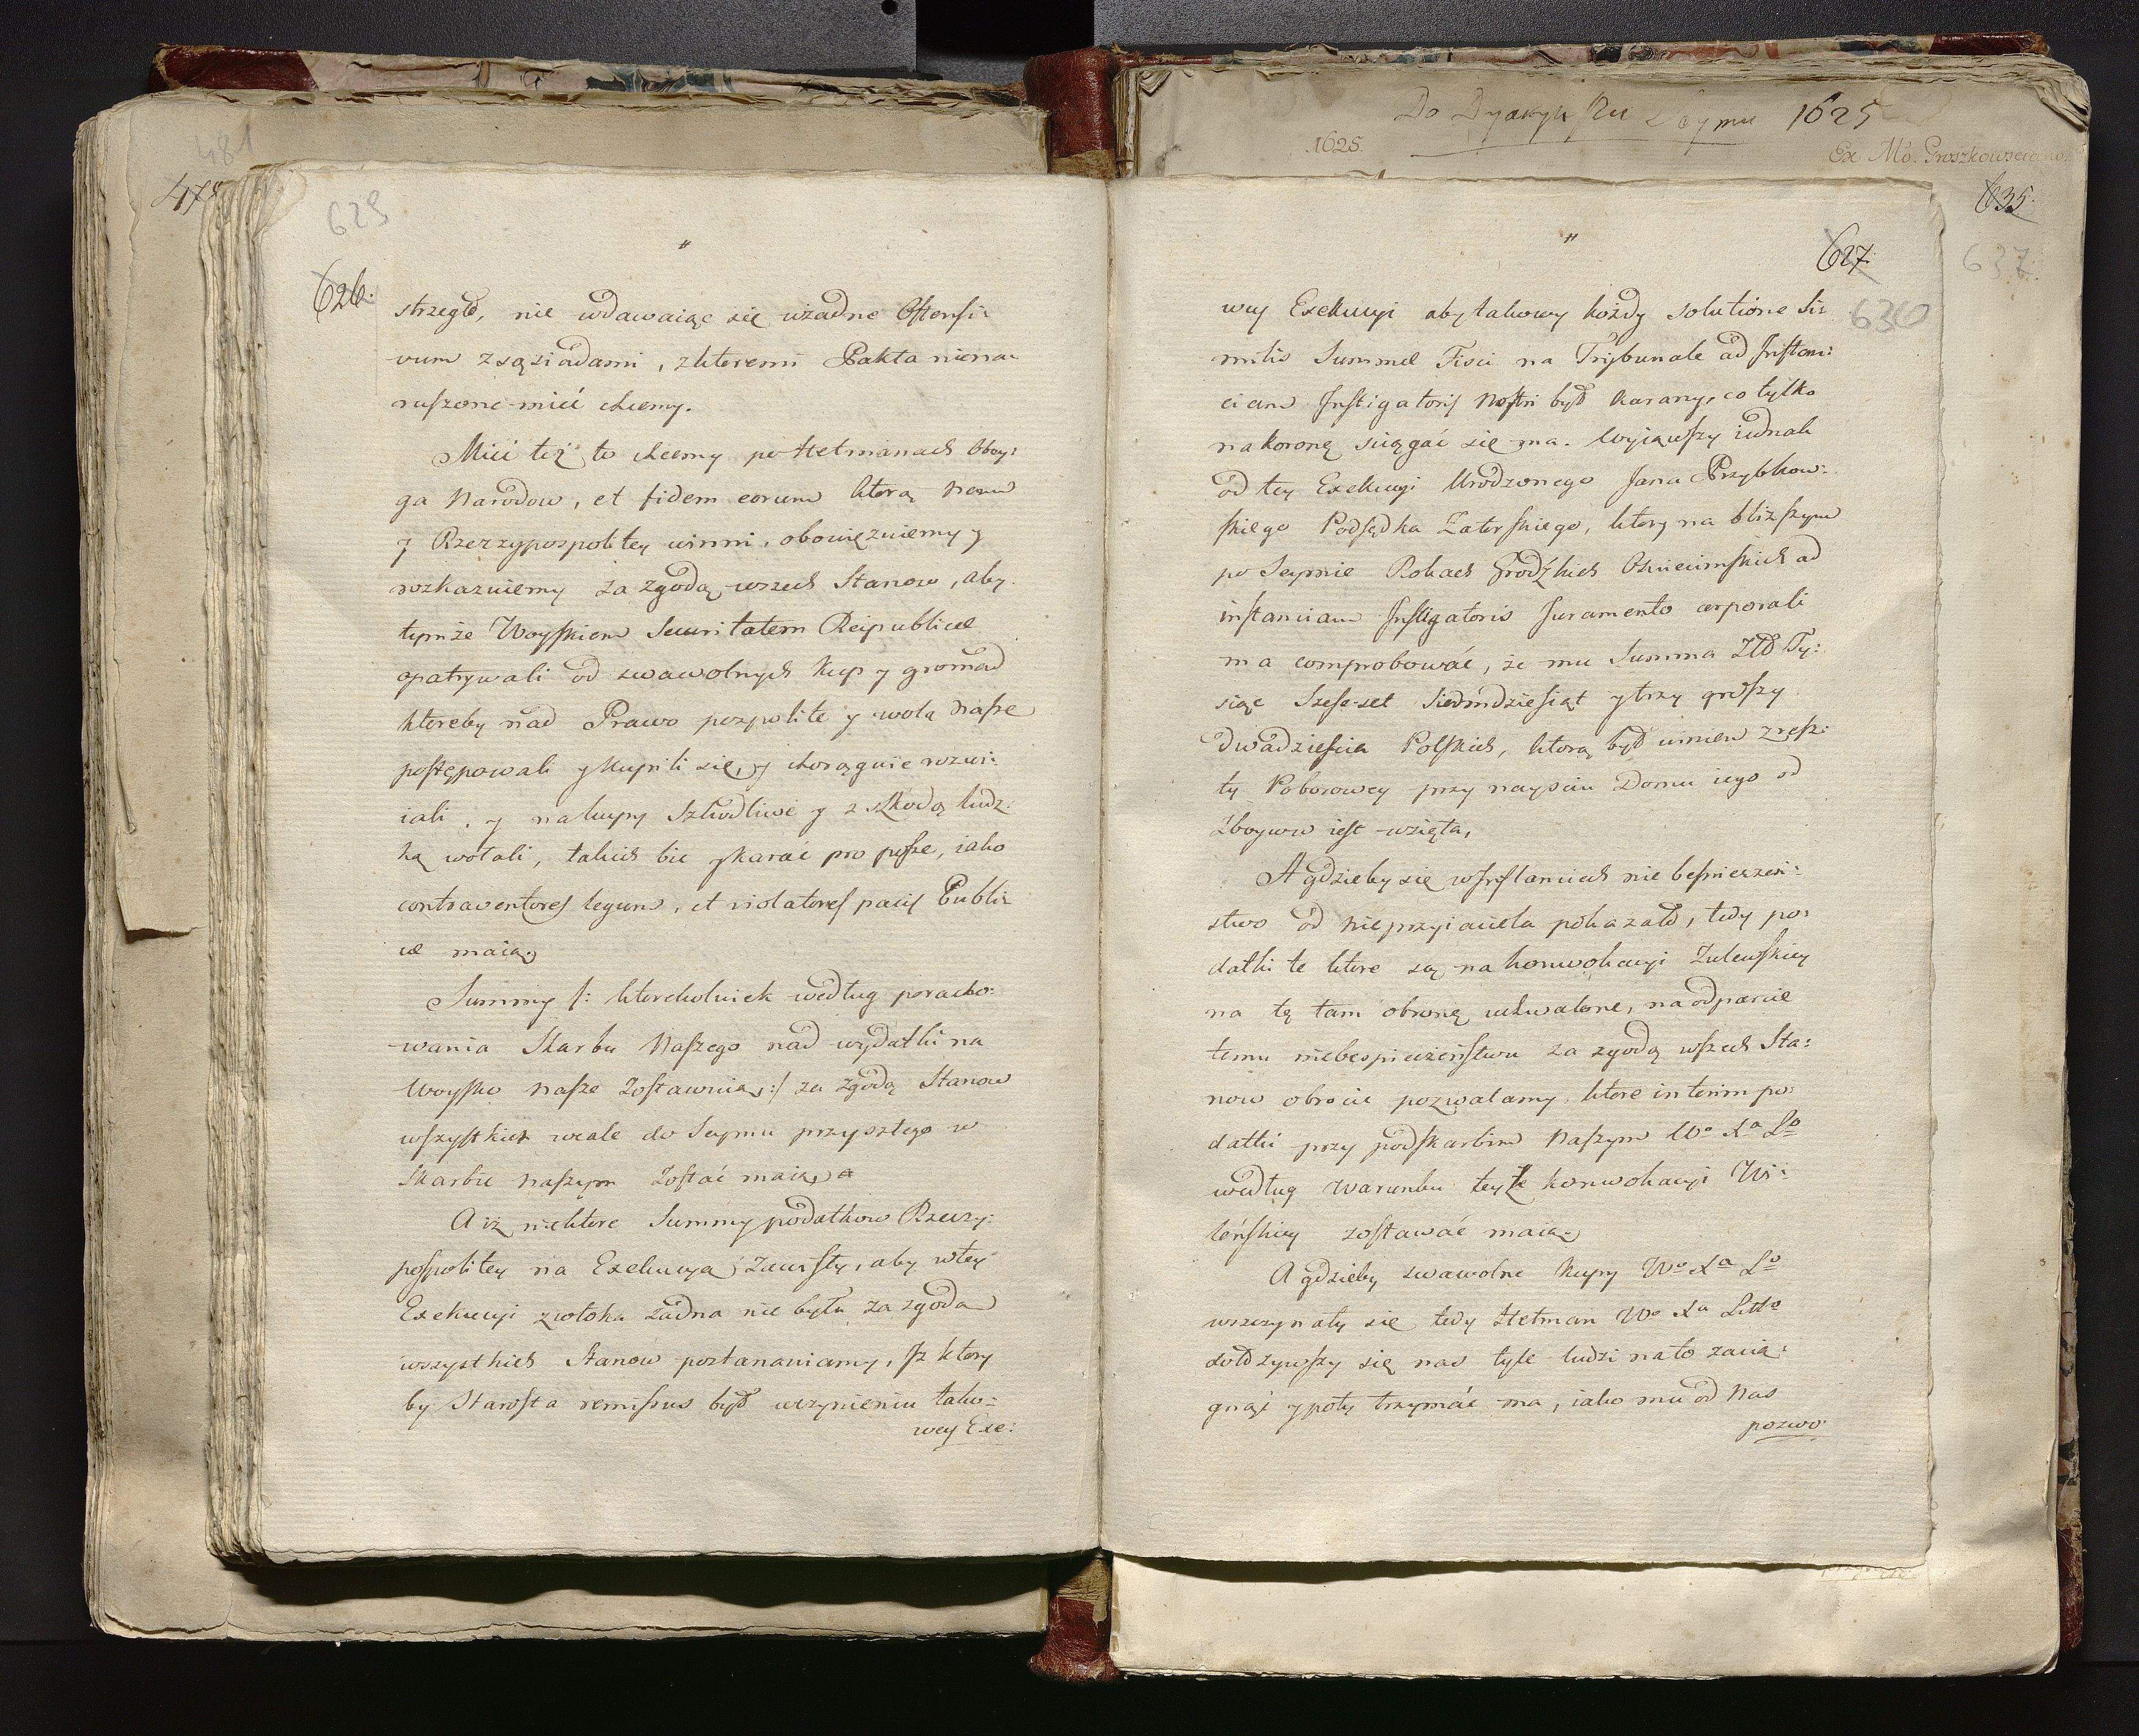 481
478
629
"
626.
strzegł, nie wdawaiąc się wżadne Offensi:
vum z sąsiadami, zktoremi Pakta niena:
ruszone mieć chcemy.
Mieć też to chcemy po Hetmanach Oboy:
ga Narodow, et fidem eorum ktorą Nam
y Rzeczypospolitey winni, obowięzuiemy y
rozkazuiemy za zgodą wszech Stanow, aby
tymże Woyskiem Securitatem Reipublicæ
opatrywali od swawolnych kup y gromad
ktoreby nad Prawo pospolite y wolą nasze
postępowali y kupili się, y chorągwie rozwi:
iali, y nakupy szkodliwe y z szkodą ludz:
ką wołali, takich bić y karać pro posse, iako
contraventores legum, et violatores pacis Publi:
cæ maią.
Summy /: ktorekolwiek według poracho:
wania Skarbu Naszego nad wydatki na
Woysko nasze zostawuią :/ za zgodą Stanow
wszystkich wcale do Seymu przyszłego w
Skarbie naszym zostać maią.
A iż niektore Summy podatkow Rzeczy:
pospolitey na Exekucyą zawisły, aby wtey
Exekucyi zwłoka żadna nie była za zgodą
wszystkich Stanow postanawiamy, iż ktory
by Starosta remissus był wczynieniu tako:
wey Exe:
Do Seymu 1625
1625.
Ex Mo. Groszkowsciano
635.
637.
"
627.
630
wey Exekucyi aby takowy kożdy solutione Si:
milis Summæ Fisci na Trybunale ad Instan:
ciam Instigatoris Nostri był karany, co tylko
nakoronę sciągać się ma. Wyiąwszy iednak
od tey Exekucyi Urodzonego Jana Przybkow:
skiego Podsędka Zatorskiego, ktory na bliższym
po Seymie Rokach Grodzkich Oswiecimskich ad
instanciam Instigatoris Juramento corporali
ma comprobować, że mu Summa Złł Ty:
siąc Szesc-set Siedmdziesiąt y trzy groszy
dwadziescia Polskich, ktorą był winien zresz:
ty Poborowey przy naysciu Domu iego od
Zboycow iest wzięta,
A gdzieby się w Inflanciech nie bespieczeń:
stwo od nieprzyiaciela pokazało, tedy po:
datki te ktore są na konwokacyi
na tę tam obronę uchwalone, na odparcie
temu niebespieczeństwu za zgodą wszech Sta:
now obrocic pozwalamy. ktore interim po:
datki przy podskarbim Naszym Wo Xa Lo
według Warunku teyże konwokacyi Wi:
leńskiey zostawać maią.
A gdzieby swawolne kupy Wo Xa Lo
wszczynały się tedy Hetman Wo Xa Litto
dołożywszy się nas tyle ludzi na to zacią:
gnąć y poty trzymać ma, iako mu od Nas
pozwo: